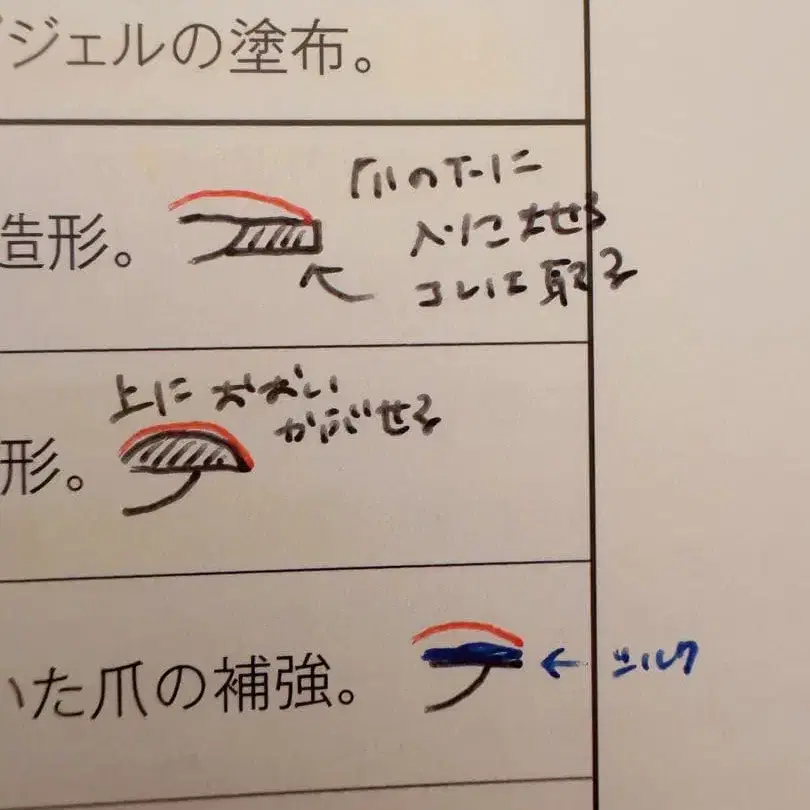 ジェルの塗布。
造形。
爪の下に
入りこませる
コレは取る
上に おおい
かぶせる
形。
いた爪の補強。
← シルク